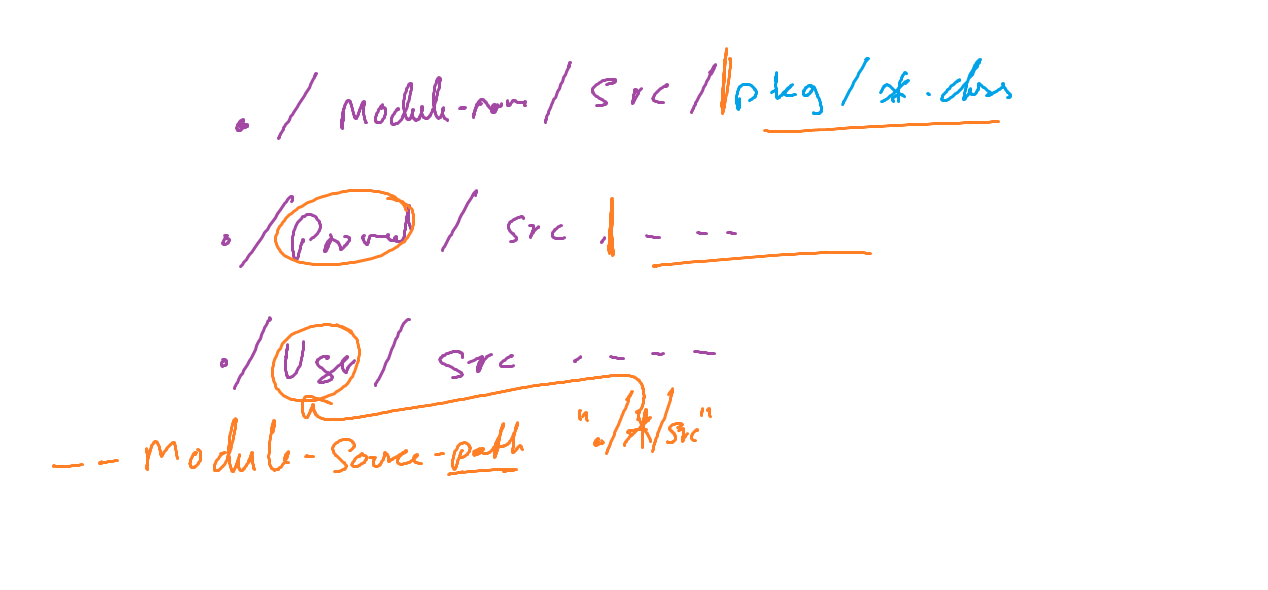 ./ module-name / src / pkg / *.class
./ / src / - - -
./ User / src . - - - -
-- module-source-path "./*/src"